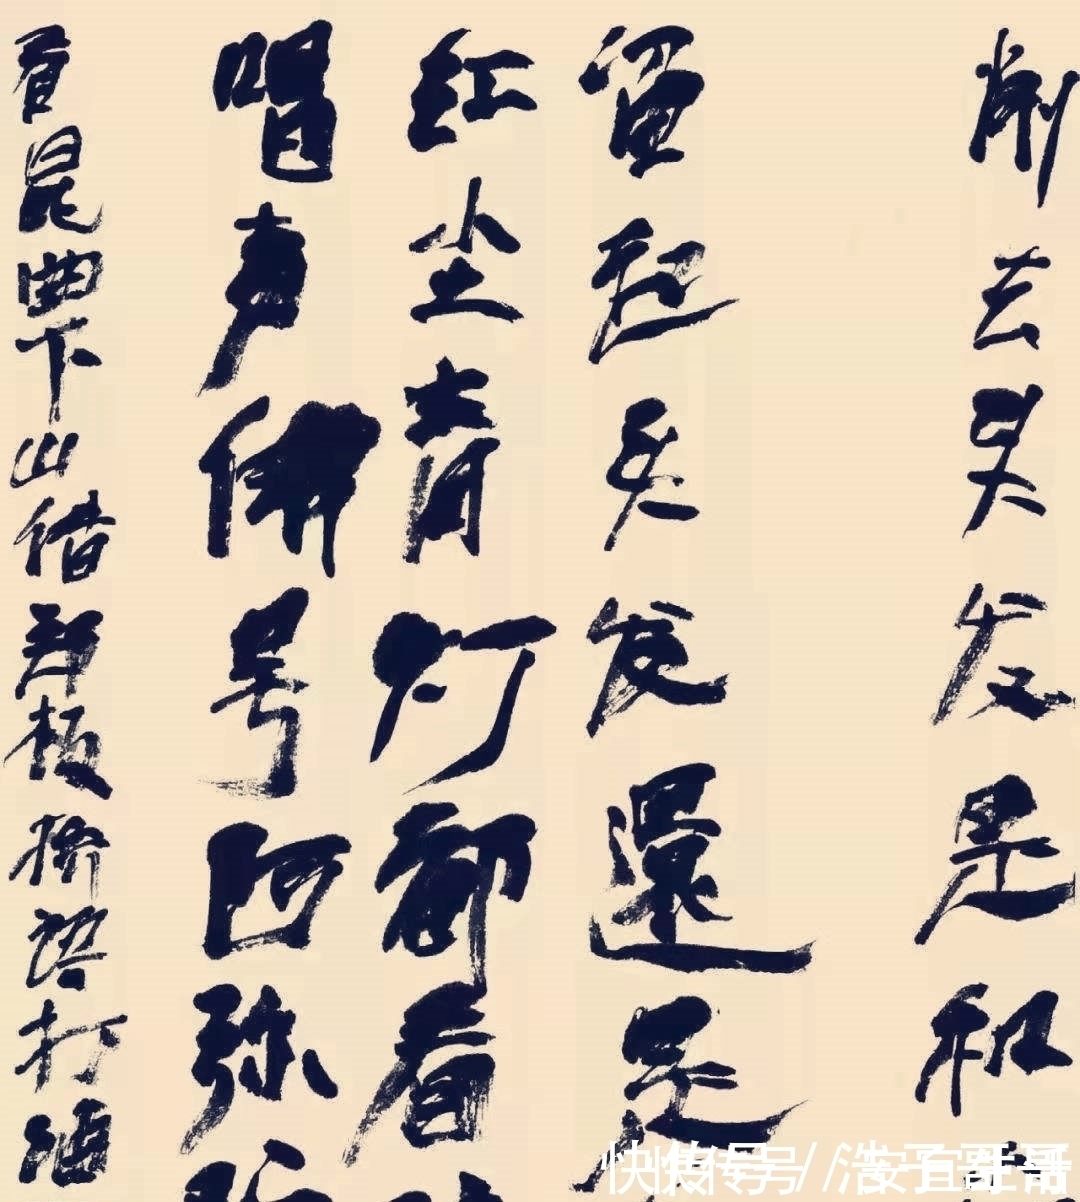 削去发是和
留起发还是
红尘青灯都看
唱声佛号阿弥
看昆曲下山借郑板桥语打酒
快传号/